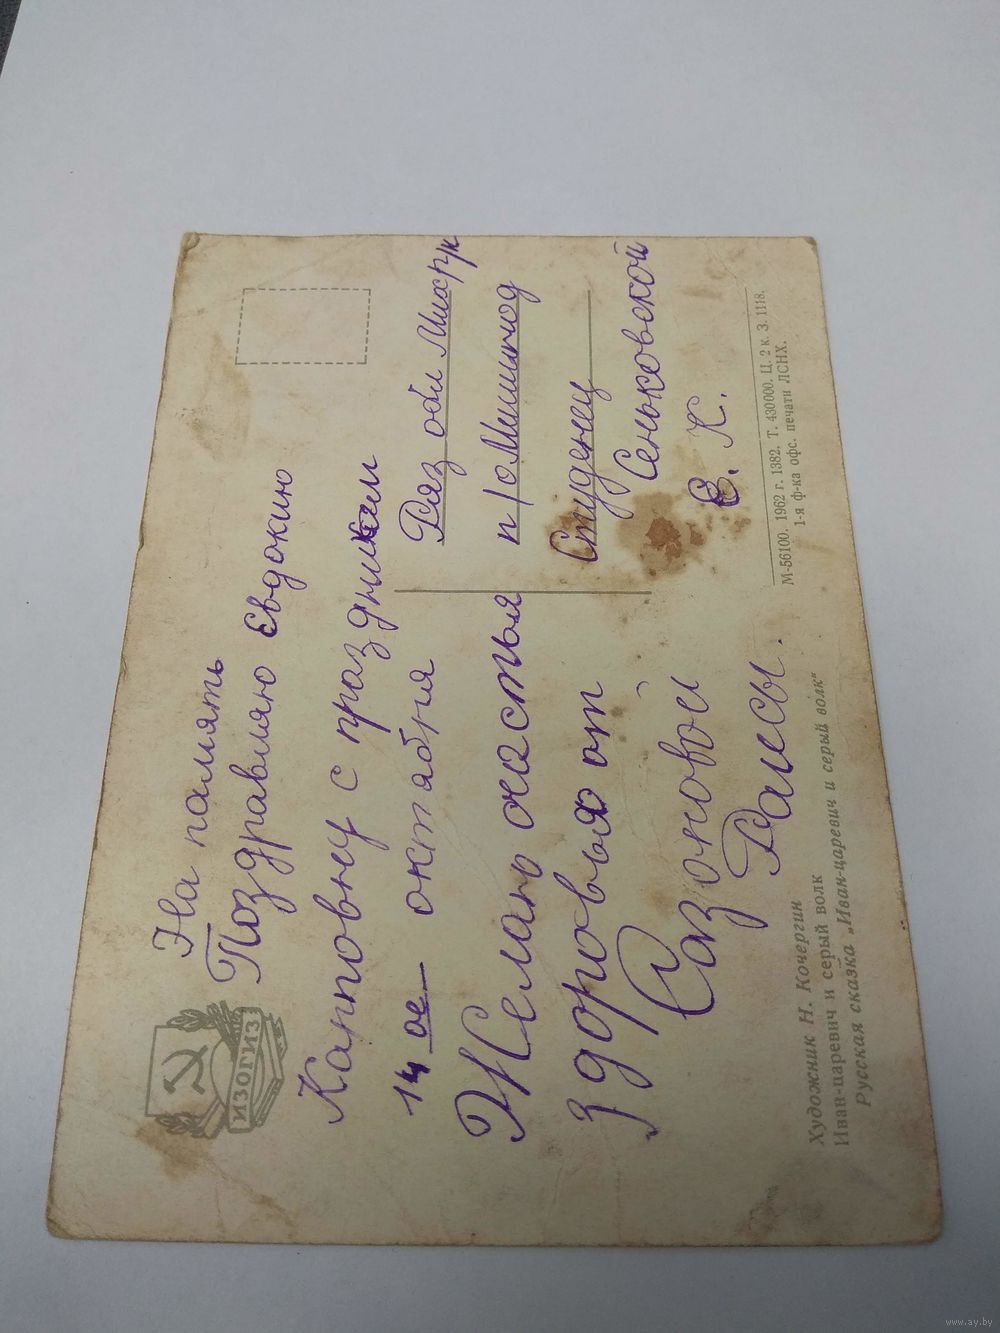 ИЗОГИЗ
На память
Поздравляю Евдокию
Карповну с праздником
14 ое октября
Желаю счастья
здоровья от
Сазоновой
Раисы.
Ряз обл Мих р/к
п/о
Студенец
Сеньковской
Е. К.
Художник Н. Кочергин
Иван-царевич и серый волк
Русская сказка „Иван-царевич и серый волк“
М-56100. 1962 г. 1382. Т. 430000. Ц. 2 к. З. 1118.
1-я ф-ка офс. печати ЛСНХ.
www.ay.by